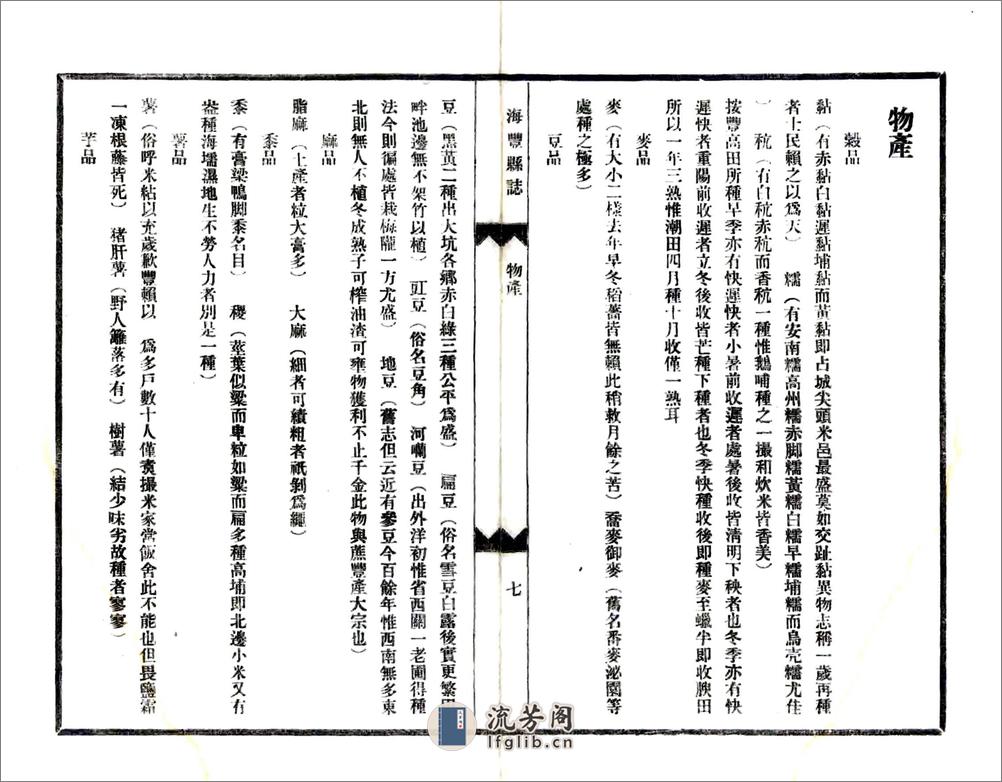 物產
穀品
黏（有赤黏白黏遲黏埔黏而黃黏即占城尖頭米邑最盛莫如交趾黏異物志稱一歲再種
者士民賴之以爲天）　糯（有安南糯高州糯赤脚糯黃糯白糯早糯埔糯而烏壳糯尤佳
）　秔（有白秔赤秔而香秔一種惟鵝哺種之一撮和炊米皆香美）
按豐高田所種早季亦有快遲快者小暑前收遲者處暑後收皆清明下秧者也冬季亦有快
遲快者重陽前收遲者立冬後收皆芒種下種者也冬季快種收後即種麥至蠟半即收腴田
所以一年三熟惟潮田四月種十月收僅一熟耳
麥品
麥（有大小二樣去年旱冬稻薔皆無賴此稍救月餘之苦）喬麥御麥（舊名番麥泌園等
處種之極多）
豆品
海豐縣誌
物產
七
豆（黑黃二種出大坑各鄉赤白綠三種公平爲盛）　扁豆（俗名雪豆白露後實更繁田
畔池邊無不架竹以植）　豇豆（俗名豆角）　河囒豆（出外洋初惟省西關一老圃得種
法今則徧處皆栽梅隴一方尤盛）　地豆（舊志但云近有參豆今百餘年惟西南無多東
北則無人不植冬成熟子可榨油渣可壅物獲利不止千金此物與蔗豐產大宗也）
麻品
脂麻（土產者粒大膏多）　大麻（細者可績粗者祇剝爲繩）
黍品
黍（有膏粱鴨脚黍名目）　稷（莖葉似粱而卑粒如粱而扁多種高埔即北邊小米又有
種海壖濕地生不勞人力者別是一種）
薯品
薯（俗呼米粘以充歲歉豐賴以　爲多戶數十人僅賚撮米家常飯舍此不能也但畏鹽霜
一凍根藤皆死）　猪肝薯（野人籬落多有）　樹薯（結少味劣故種者寥寥）
芋品
流芳阁
lfglib.cn